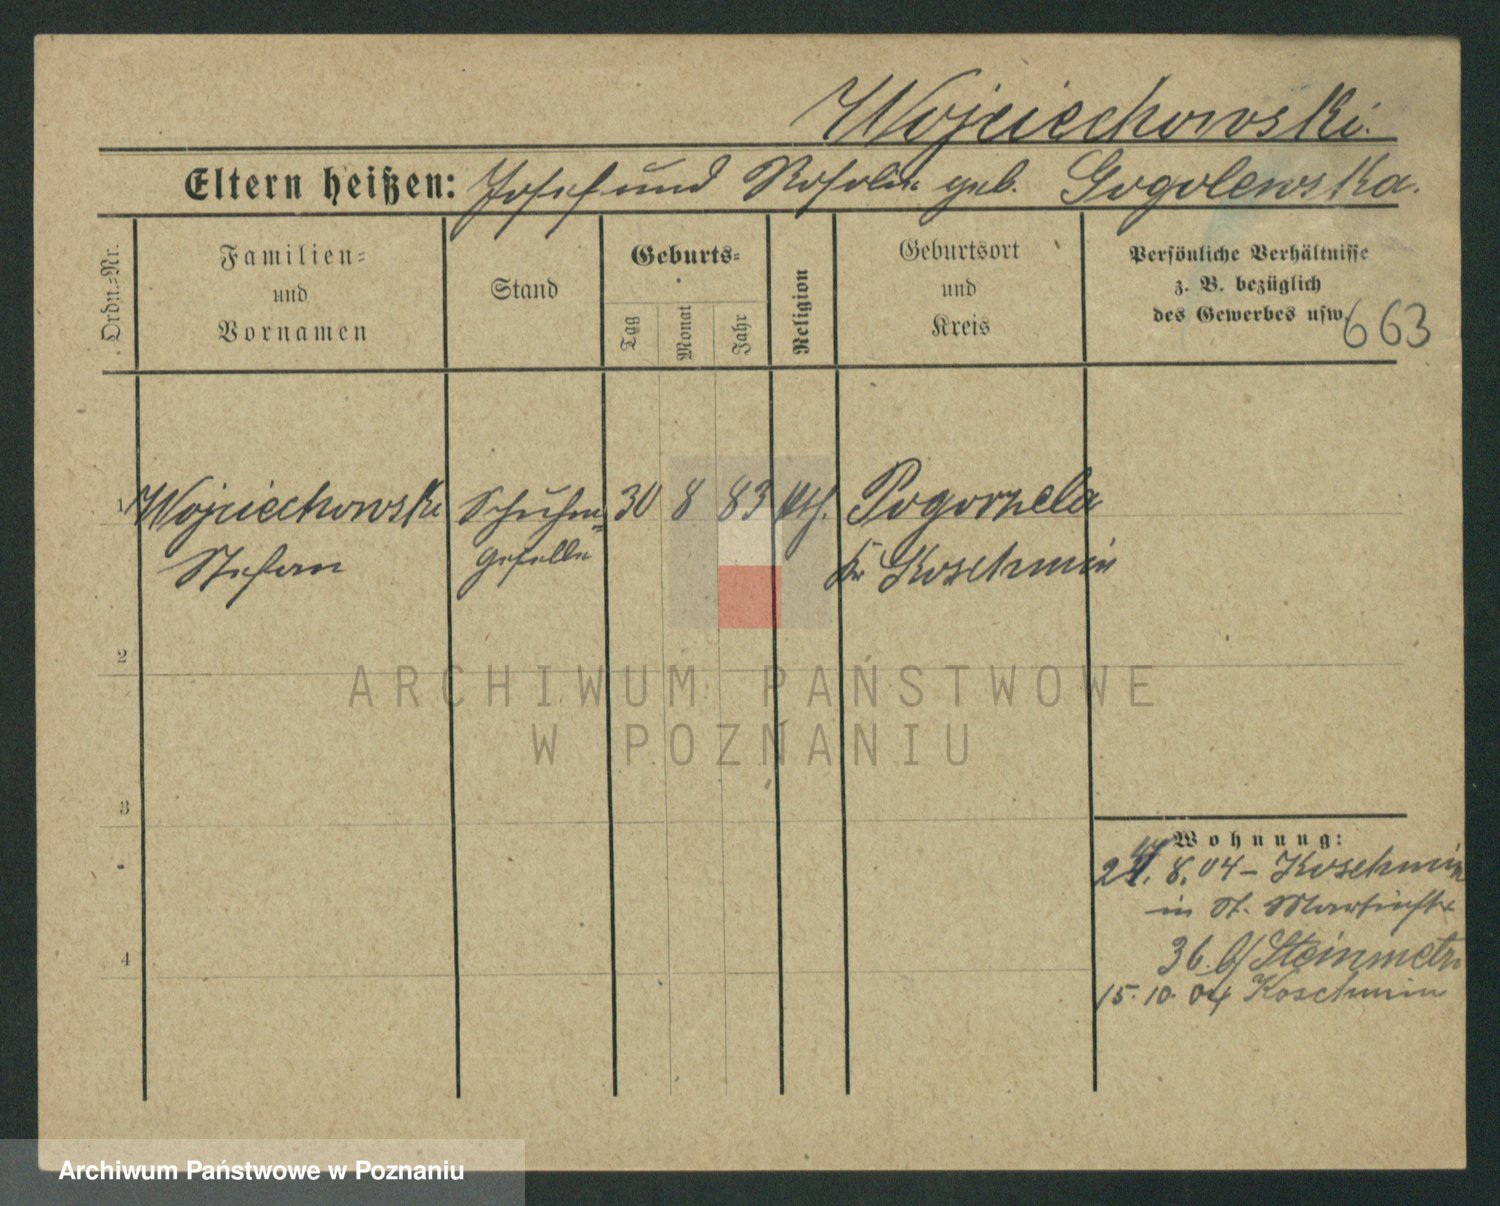 Wojciechowski.
Eltern heißen: Josef und Rosalie geb. Gogolewska.
Ordn.=Nr.
Familien=
und
Vornamen
Stand
Geburts=
Tag
Monat
Jahr
Religion
Geburtsort
und
Kreis
Persönliche Verhältnisse
z. B. bezüglich
des Gewerbes usw.
663
1 Wojciechowski Schuhm= 30 8 83 kth. Pogorzela
Stefan geselle Kr Koschmin
2
ARCHIWUM PAŃSTWOWE
W POZNANIU
3
Wohnung:
8. 04 – Koschmin
in St. Martinstr
36. b/ Steinmetz
4
15. 10. 04 Koschmin
Archiwum Państwowe w Poznaniu